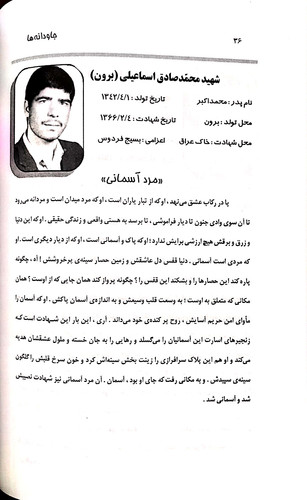 ۳۶
جاودانه‌ها
شهید محمّدصادق اسماعیلی (برون)
نام پدر : محمداکبر
تاریخ تولد : ۱۳۴۲/۴/۱
محل تولد : برون
تاریخ شهادت : ۱۳۶۶/۲/۴
محل شهادت : خاک عراق
اعزامی : بسیج فردوس
«مرد آسمانی»
پا در رکاب عشق می‌نهد، اوکه از تبار یاران است ، اوکه مرد میدان است و مردانه می‌رود
تا آن سوی وادی جنون تا دیار فراموشی ، تا برسد به هستی واقعی و زندگی حقیقی . اوکه این دنیا و
زرق و برقش هیچ ارزشی برایش ندارد ؛ اوکه پاک و آسمانی است ، اوکه از دیار دیگری است . او
که مردی است آسمانی . دنیا قفس دل عاشقش و زمین حصار سینه‌ی پرخروشش ! آه ، چگونه
پاره کند این حصارها را و بشکند این قفس را ؟ چگونه پرواز کند همان جایی که از اوست ؟ همان
مکانی که متعلق به اوست ؛ به وسعت قلب وسیعش و به اندازه‌ی آسمان پاکش . اوکه آسمان را
مأوای امن حریم آسایش ، روح پر کنده‌ی خود می‌داند. آری ، این بار این شهادت است‌که
زنجیرهای اسارت این آسمانیان را می‌گسلد و رهایی را به جان خسته و ملول عشقشان هدیه
می‌کند و او هم این پلاک سرافرازی را زینت بخش سینه‌اش کرد و خون سرخ قلبش را گلگون
سینه‌ی سپیدش . و به مکانی رفت‌که جای او بود ، آسمان . آن مرد آسمانی نیز شهادت نصیبش
شد و آسمانی شد .